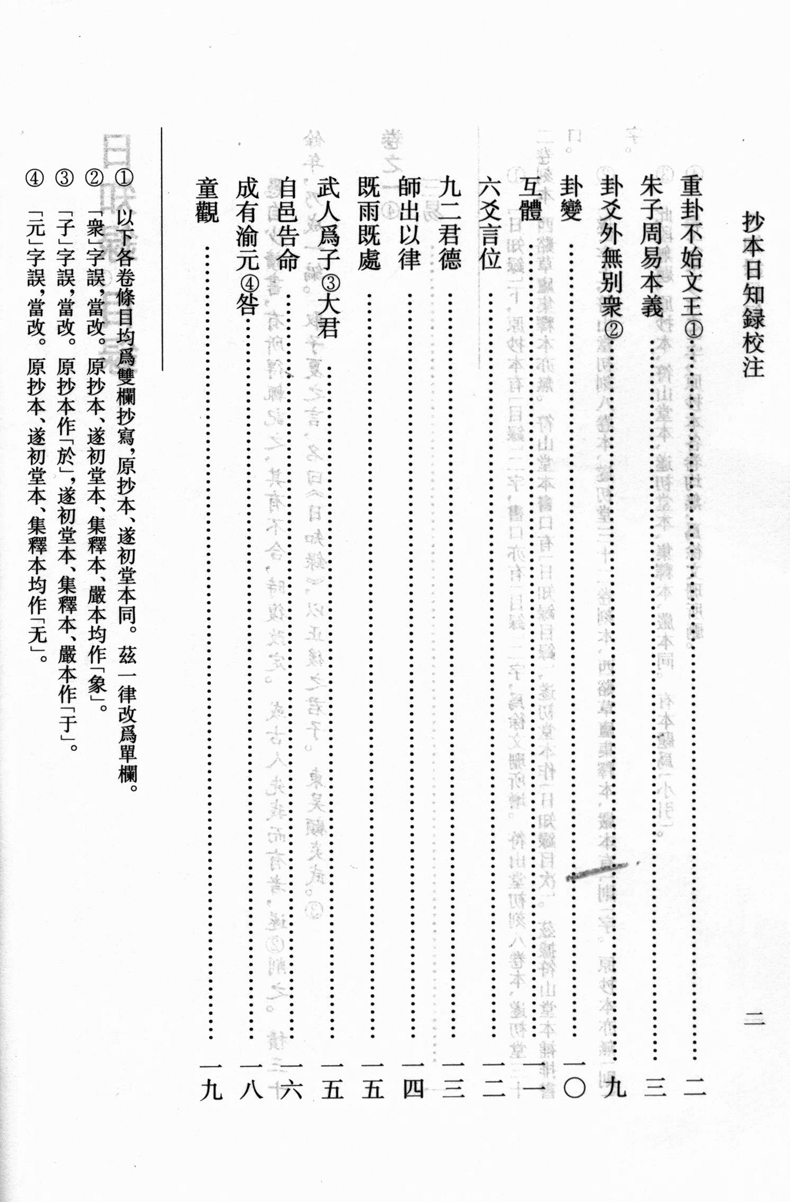 抄本日知録校注
二
重卦不始文王①……二
朱子周易本義……三
卦爻外無别衆②……九
卦變……一〇
互體……一一
六爻言位……一二
九二君德……一三
師出以律……一四
既雨既處……一五
武人爲子③大君……一五
自邑告命……一六
成有渝元④咎……一八
童觀……一九
① 以下各卷條目均爲雙欄抄寫，原抄本、遂初堂本同。茲一律改爲單欄。
② 「衆」字誤，當改。原抄本、遂初堂本、集釋本、嚴本均作「象」。
③ 「子」字誤，當改。原抄本作「於」，遂初堂本、集釋本、嚴本作「于」。
④ 「元」字誤，當改。原抄本、遂初堂本、集釋本均作「无」。